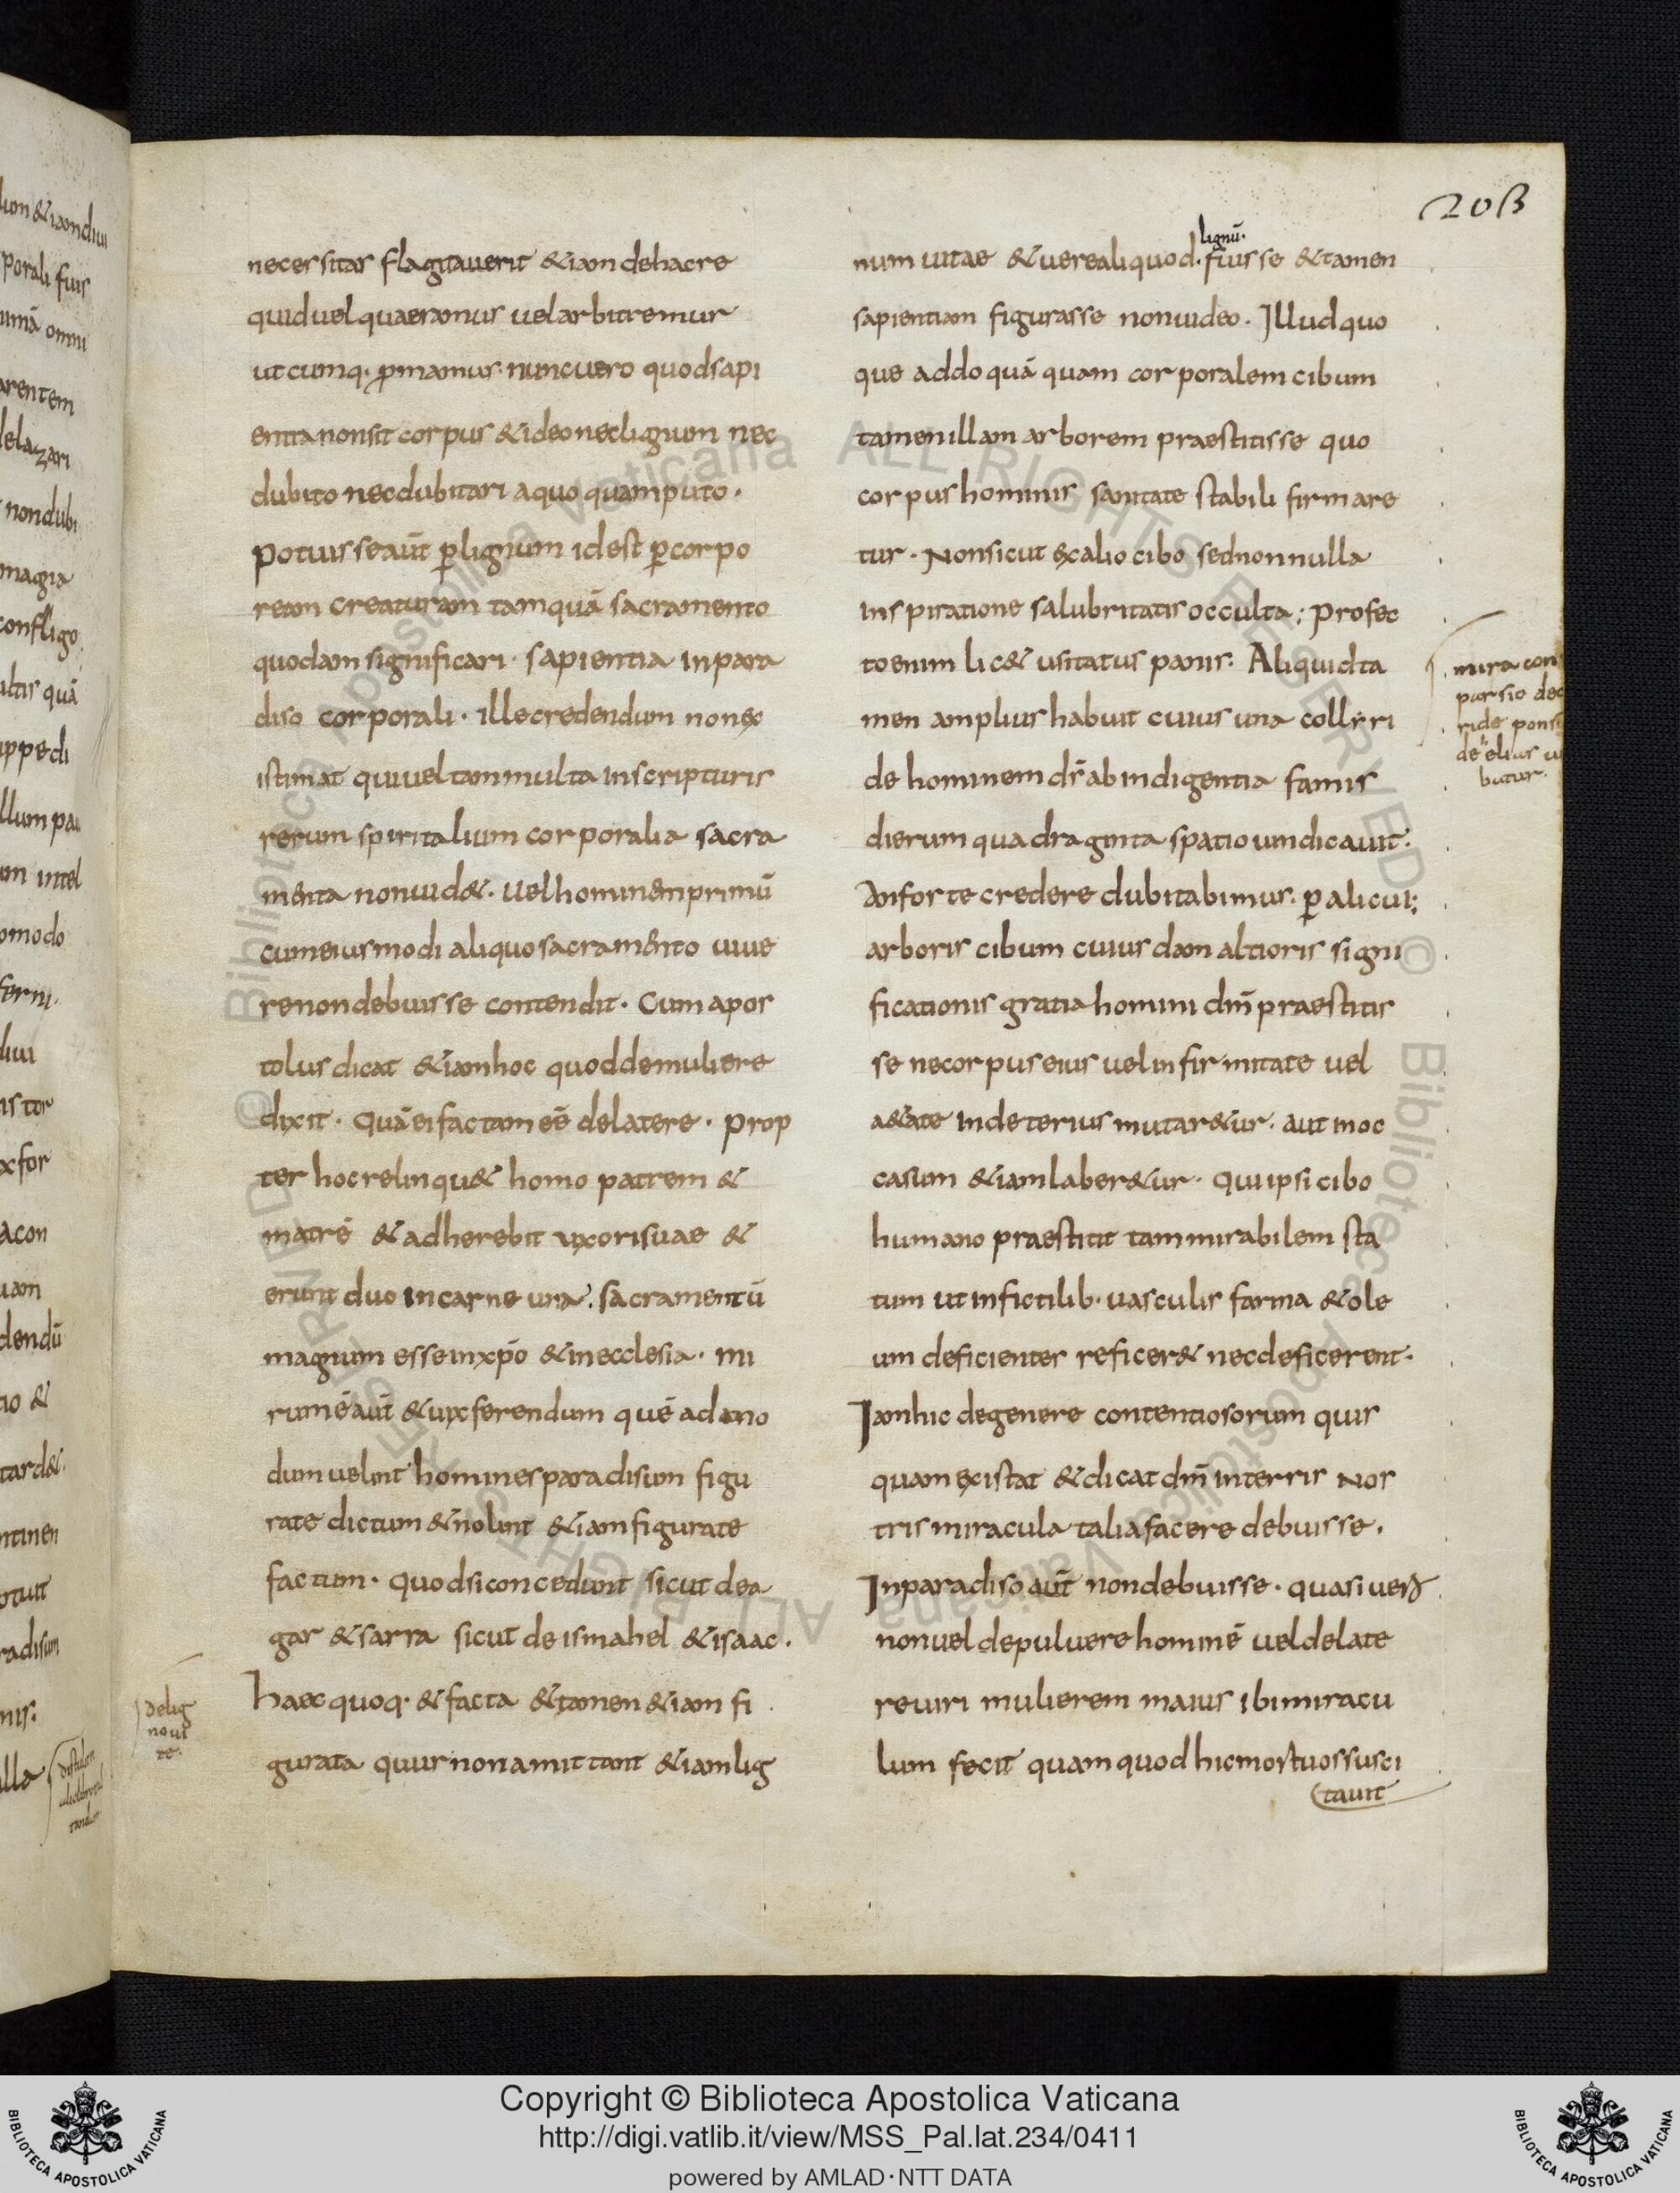 203
necessitas flagitauerit &iam dehacre
quiduel quaeramus uelarbitremur
ut cumq. ꝓmamus. nuncuero quodsapi
entia nonsit corpus &ideo neclignum nec
dubito necdubitari aquo quamputo.
potuisseaūt ꝑlignum idest ꝑcorpo
ream creaturam tamquā sacramento
quodam significari. sapientia inpara
diso corporali. ille credendum nonex
istimat quiuel tam multa inscripturis
rerum spiritalium corporalia sacra
menta nonuid&. uel hominem primū
cumeiusmodi aliquo sacramento uiue
re non debuisse contendit. Cum apos
tolus dicat &iamhoc quod demuliere
dixit. quā ei factam eē delatere. prop
ter hoc relinqu& homo patrem &
matrē & adherebit uxori suae &
erunt duo incarne una. sacramentū
magnum esse inxp̄o &inecclesia. mi
rumē aūt &uix ferendum quē admo
dum uelint homines paradisum figu
rate dictum &nolint &iam figurate
factum. quodsi concedunt sicut dea
gar &sarra sicut de ismahel &isaac.
haec quoq. &facta &tamen &iam fi
gurata quur non amittant &iam lig
delig
no ui
te.
num uitae &uerealiquod. fuisse &tamen
lignū.
sapientiam figurasse nonuideo. Illud quo
que addo quā quam corporalem cibum
tamen illam arborem praestitisse quo
corpus hominis sanitate stabili firmare
tur. Nonsicut exalio cibo sednonnulla
inspiratione salubritatis occulta; profec
toenim lic& usitatus panis. Aliquid ta
men amplius habuit cuius una collyri
de hominem dr̄ abindigentia famis
dierum quadraginta spatio uindicauit.
An forte credere dubitabimus. ꝑ alicui;
arboris cibum cuiusdam altioris signi
ficationis gratia homini dm̄ praestitis
se necorpus eius uel infirmitate uel
a&ate indeterius mutar&ur. aut inoc
casum &iam laber&ur. qui ipsi cibo
humano praestitit tam mirabilem sta
tum ut infictilib. uasculis farina &ole
um deficientes reficer& nec deficerent.
Iam hic degenere contentiosorum quis
quam existat &dicat dm̄ interris nos
tris miracula talia facere debuisse.
Inparadiso aūt non debuisse. quasi uero
non uel depuluere hominē uel delate
re uiri mulierem maius ibi miracu
lum fecit quam quod hic mortuos susci
tauit
mira con
de elias
batur.
Copyright © Biblioteca Apostolica Vaticana
http://digi.vatlib.it/view/MSS_Pal.lat.234/0411
powered by AMLAD·NTT DATA